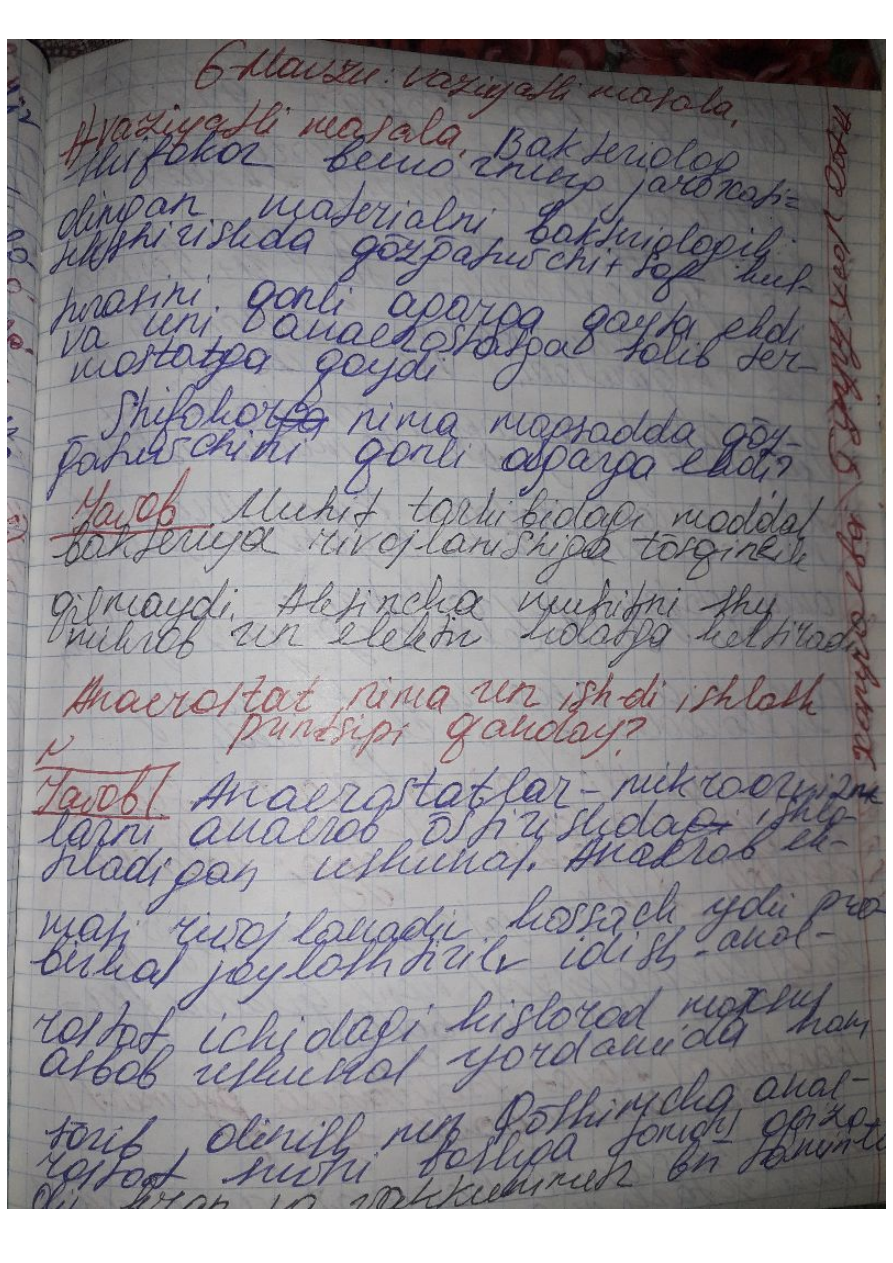 6-Mavzu: vaziyatli masala.
1) vaziyatli masala. Bakteriolog
shifokor bemorning jaroxati=
olingan materialni bakteriologik
tekshirishda qözg̃atuvchi + sof kul-
turasini qonli agarga qayta ekdi
va uni anaerostatga solib ter-
mostatga qoydi
Shifokor nima maqsadda qöz-
g̃atuvchini qonli agarga ekdi?
Javob Muhit tarkibidagi moddal
bakteriya rivojlanishiga tösqinlik
qilmaydi. Aksincha muhitni shu
mikrob un elektiv holatga keltiradi
Anaerostat nima un ish-di ishlash
printsipi qanday?
Javob! Anaerostatlar-mikroorgizm
larni anaerob östirishda ishla-
tiladigan uskuna. Anaerob ek-
masi rivojlanadi kossach ydu pro-
birkal joylashtirilv idish-anae-
rostat ichidagi kislorod maxsus
asbob uskunal yordamida ham
sörib olinish mn Qöshimcha anae-
rostat boshqa
vakkummetr bn